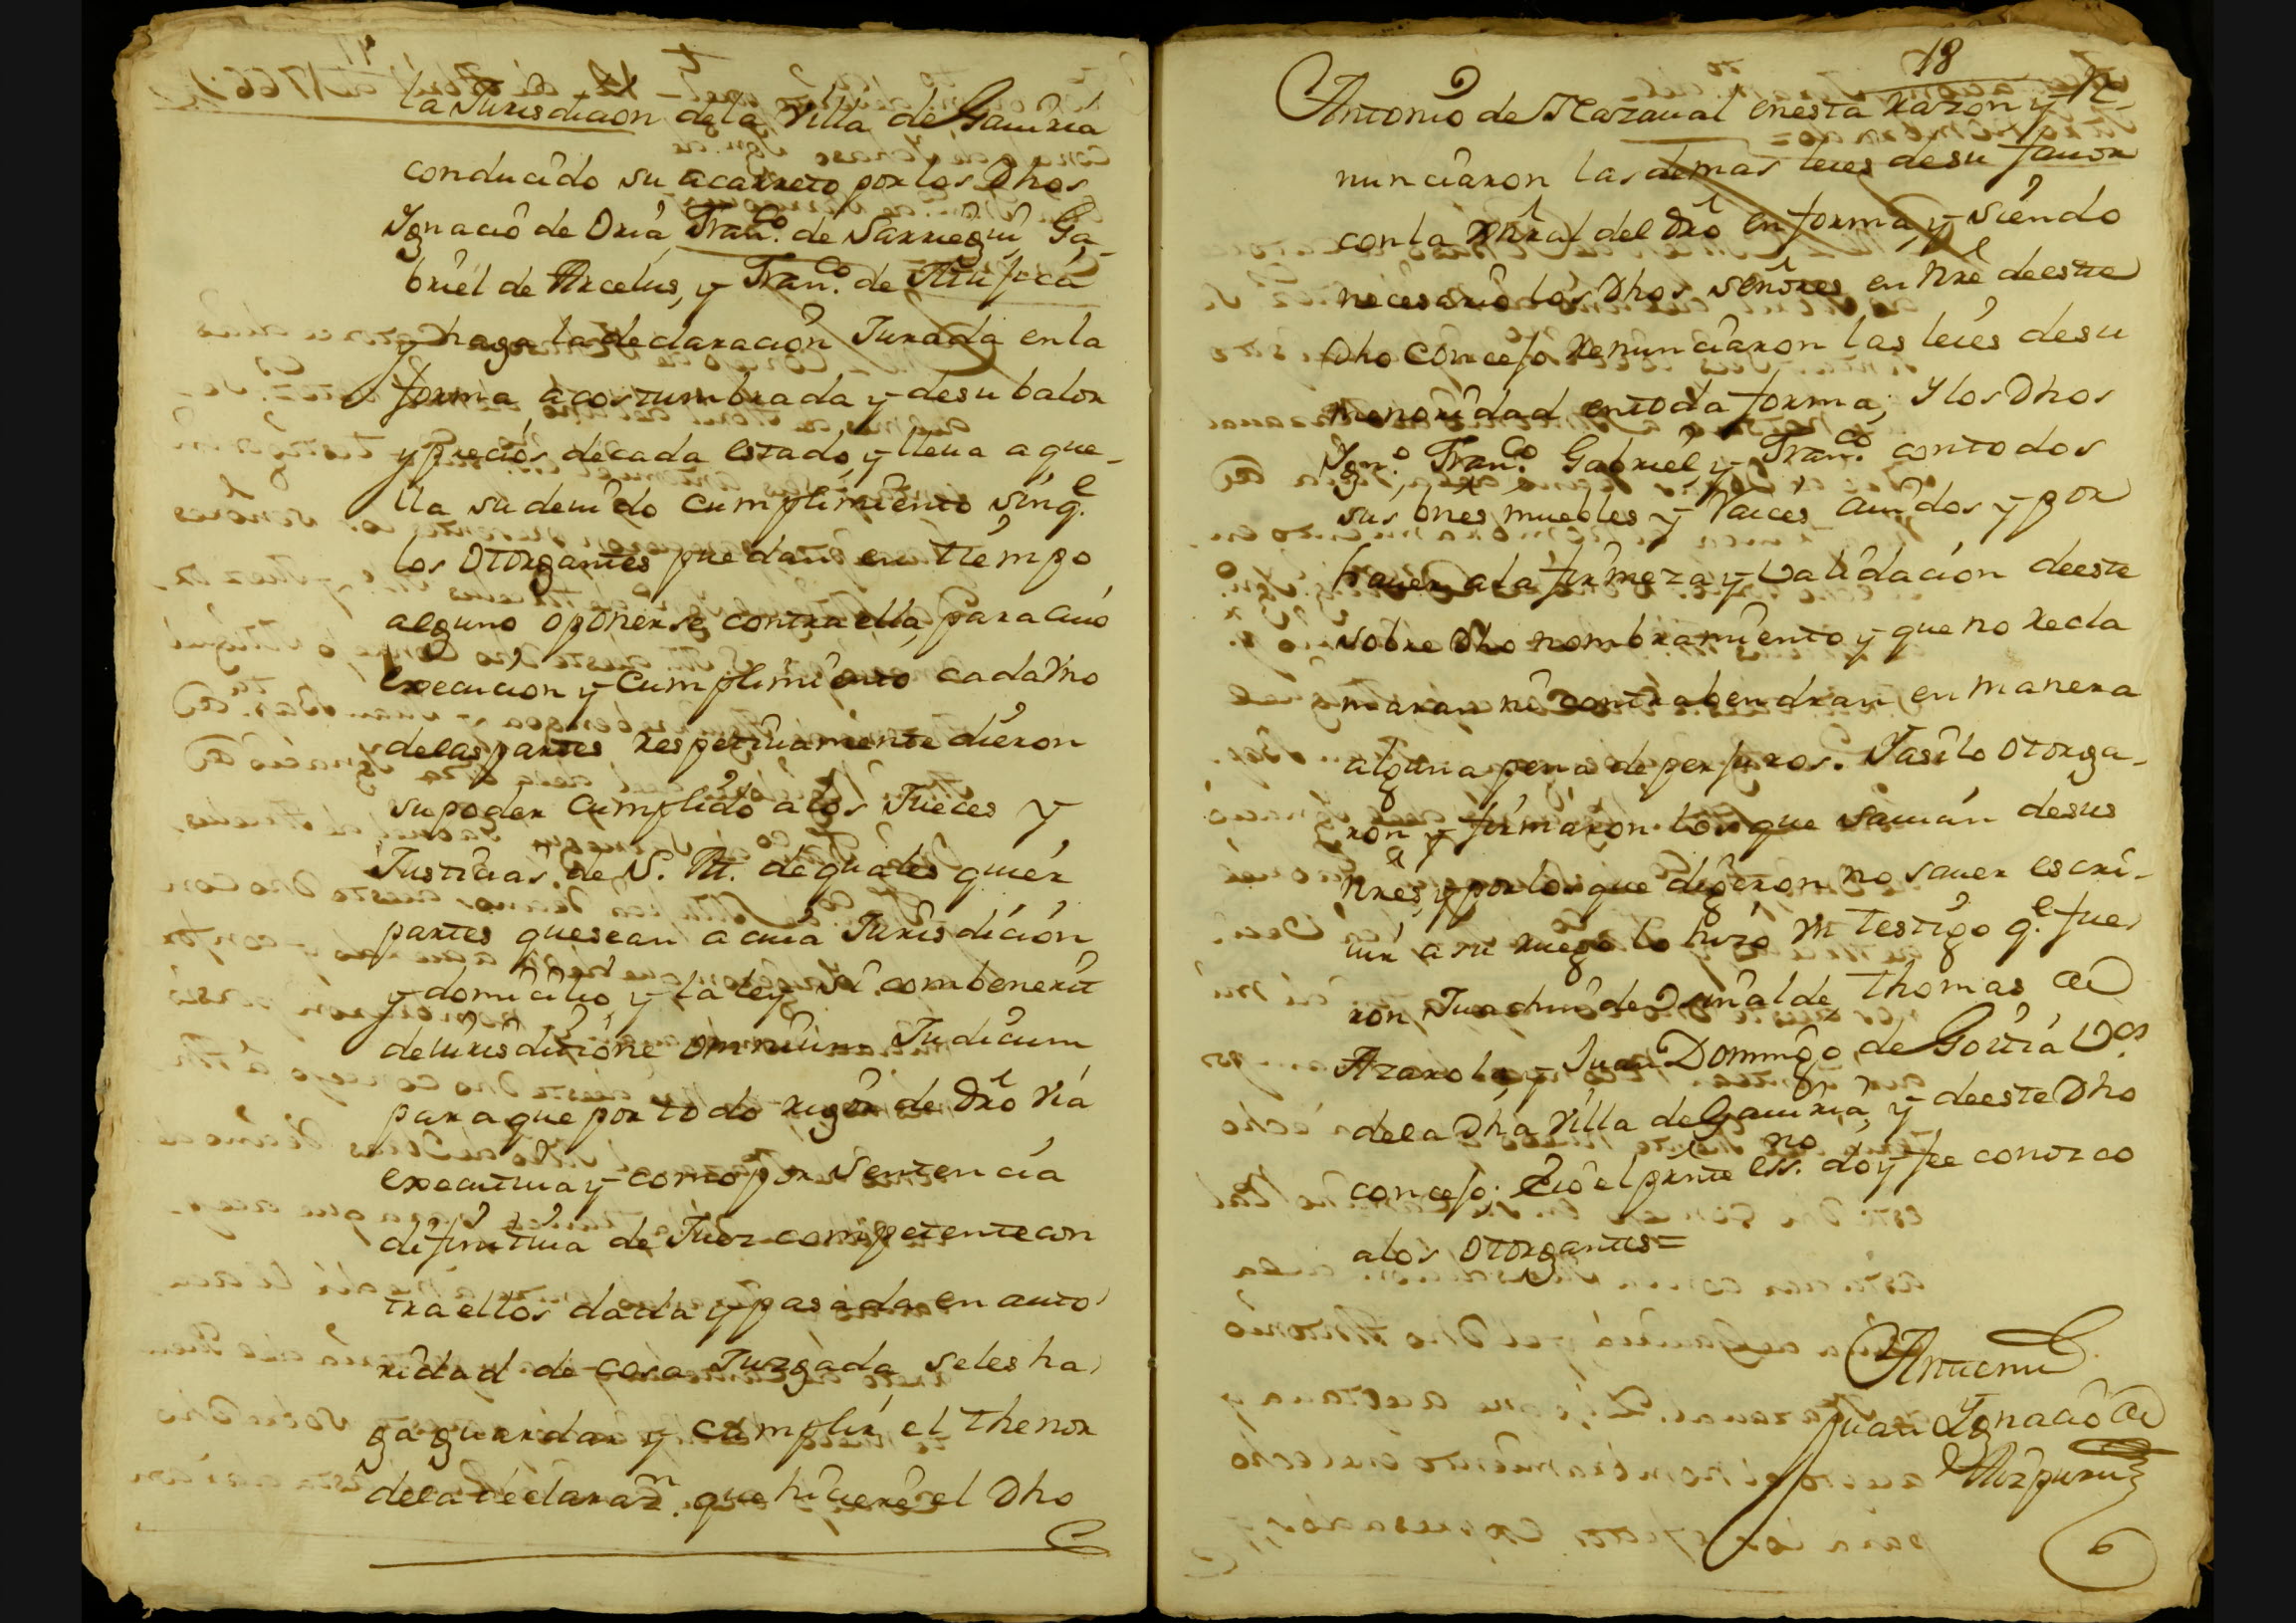 la Jurisdicion dela Villa de Gauiria
conducido su acarreto por los Dhos
Ignacio de Oria Fran.co de Sarriegui Ga-
briel de Arcelus, y Fran.co de
y haga la declaracion Jurada en la
forma acostumbrada y desu balor
y precios decada estado, y lleua aque-
lla su deuido cumplimiento sinq.e
los Otorgantes puedan en tiempo
alguno oponerse contra ella, para cuio
execucion y Cumplimiento cada Vno
delas partes respetiuamente dieron
supoder Cumplido alos Jueces y
Justicias de S. M. dequales quier
partes quesean acuia Jurisdicion
y domicilio, y la ley si combenerit
deiurisdicione omnium Judicum
para que por todo rigor de Dro Via
executiua y como por Sentencia
difinitiua de Juez competente con
tra ellos dada y pasada en auto
ridad de cosa Juzgada seles ha
ga guardar y cumplir el thenor
dela declaraz.n que hiciere el Dho
18
Antonio de Mazaual enesta razon y Re-
nunciaron las demas leies desu fauor
con la gñral del Dro en forma, y siendo
necesario los Dhos señores en Nre deeste
Dho Concejo Renunciaron las leies desu
menoridad entoda forma; Y los Dhos
Ign.o Fran.co Gabriel, y Fran.co contodos
sus bnes muebles y Raices auidos y por
hauer ala firmeza y Validacion deeste
sobre Dho nombramiento y que no recla
maran ni contrabendran en manera
alguna pena de perjuros. Yasilo Otorga-
ron y firmaron los que sauian desus
Nres, y por los que digeron no sauer escri-
uir a su ruego lo hizo Vn testigo q.e fue
ron Juachin de thomas de
Azarola, y Juan Domingo de Goitia V.os
dela Dha Villa de Gauiria, y deeste Dho
concejo; Eio el prnte ess.no doy fee conozco
alos Otorgantes=
Antemi
Juan Ignacio de
Aizpuru
6